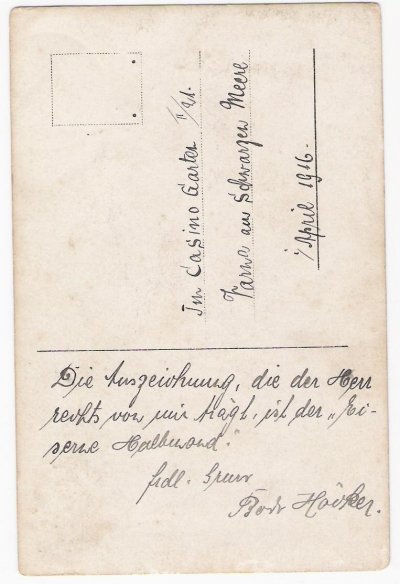 Im Casino Garten
Varna am Schwarzen Meere
April 1916.
Die Auszeichnung, die der Herr
rechts von mir trägt, ist der „Ei-
serne Halbmond".
frdl.
Höcker.